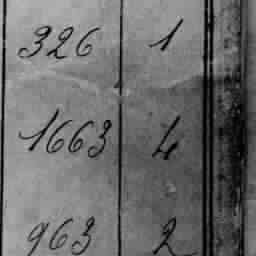 326 1
1663 4
963 2